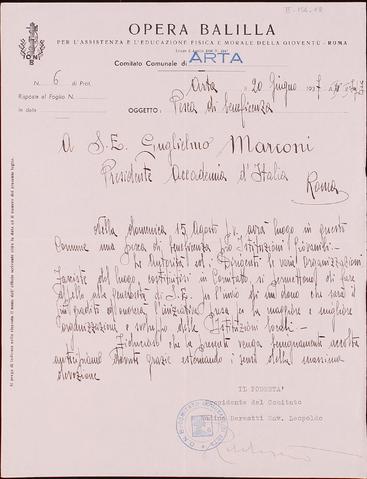 II-154.18
OPERA BALILLA
PER L'ASSISTENZA E L'EDUCAZIONE FISICA E MORALE DELLA GIOVENTÙ - ROMA
Comitato Comunale di ARTA
N. 6 di Prot.
Arta 20 Giugno
Risposta al Foglio N.
in data
OGGETTO: Pesca di beneficenza
A S.E. Guglielmo Marconi
Presidente Accademia d'Italia
Roma
Nella domenica 15 Agosto p.v. avrà luogo in questo
Comune una pesca di beneficenza pro Istituzioni Giovanili.-
Le Autorità ed i Dirigenti le varie Organizzazioni
Fasciste del luogo, costituitisi in Comitato, si permettono di fare
appello alla generosità di S.E. per l'invio di un dono che sarà il
più gradito ed onorerà l'iniziativa presa per la maggiore e migliore
organizzazione e sviluppo delle Istituzioni locali.-
Fiduciosi che la presente venga benignamente accolta
anticipiamo sentite grazie esternando i sensi della massima
devozione
IL PODESTA'
Presidente del Comitato
Cav. Leopoldo